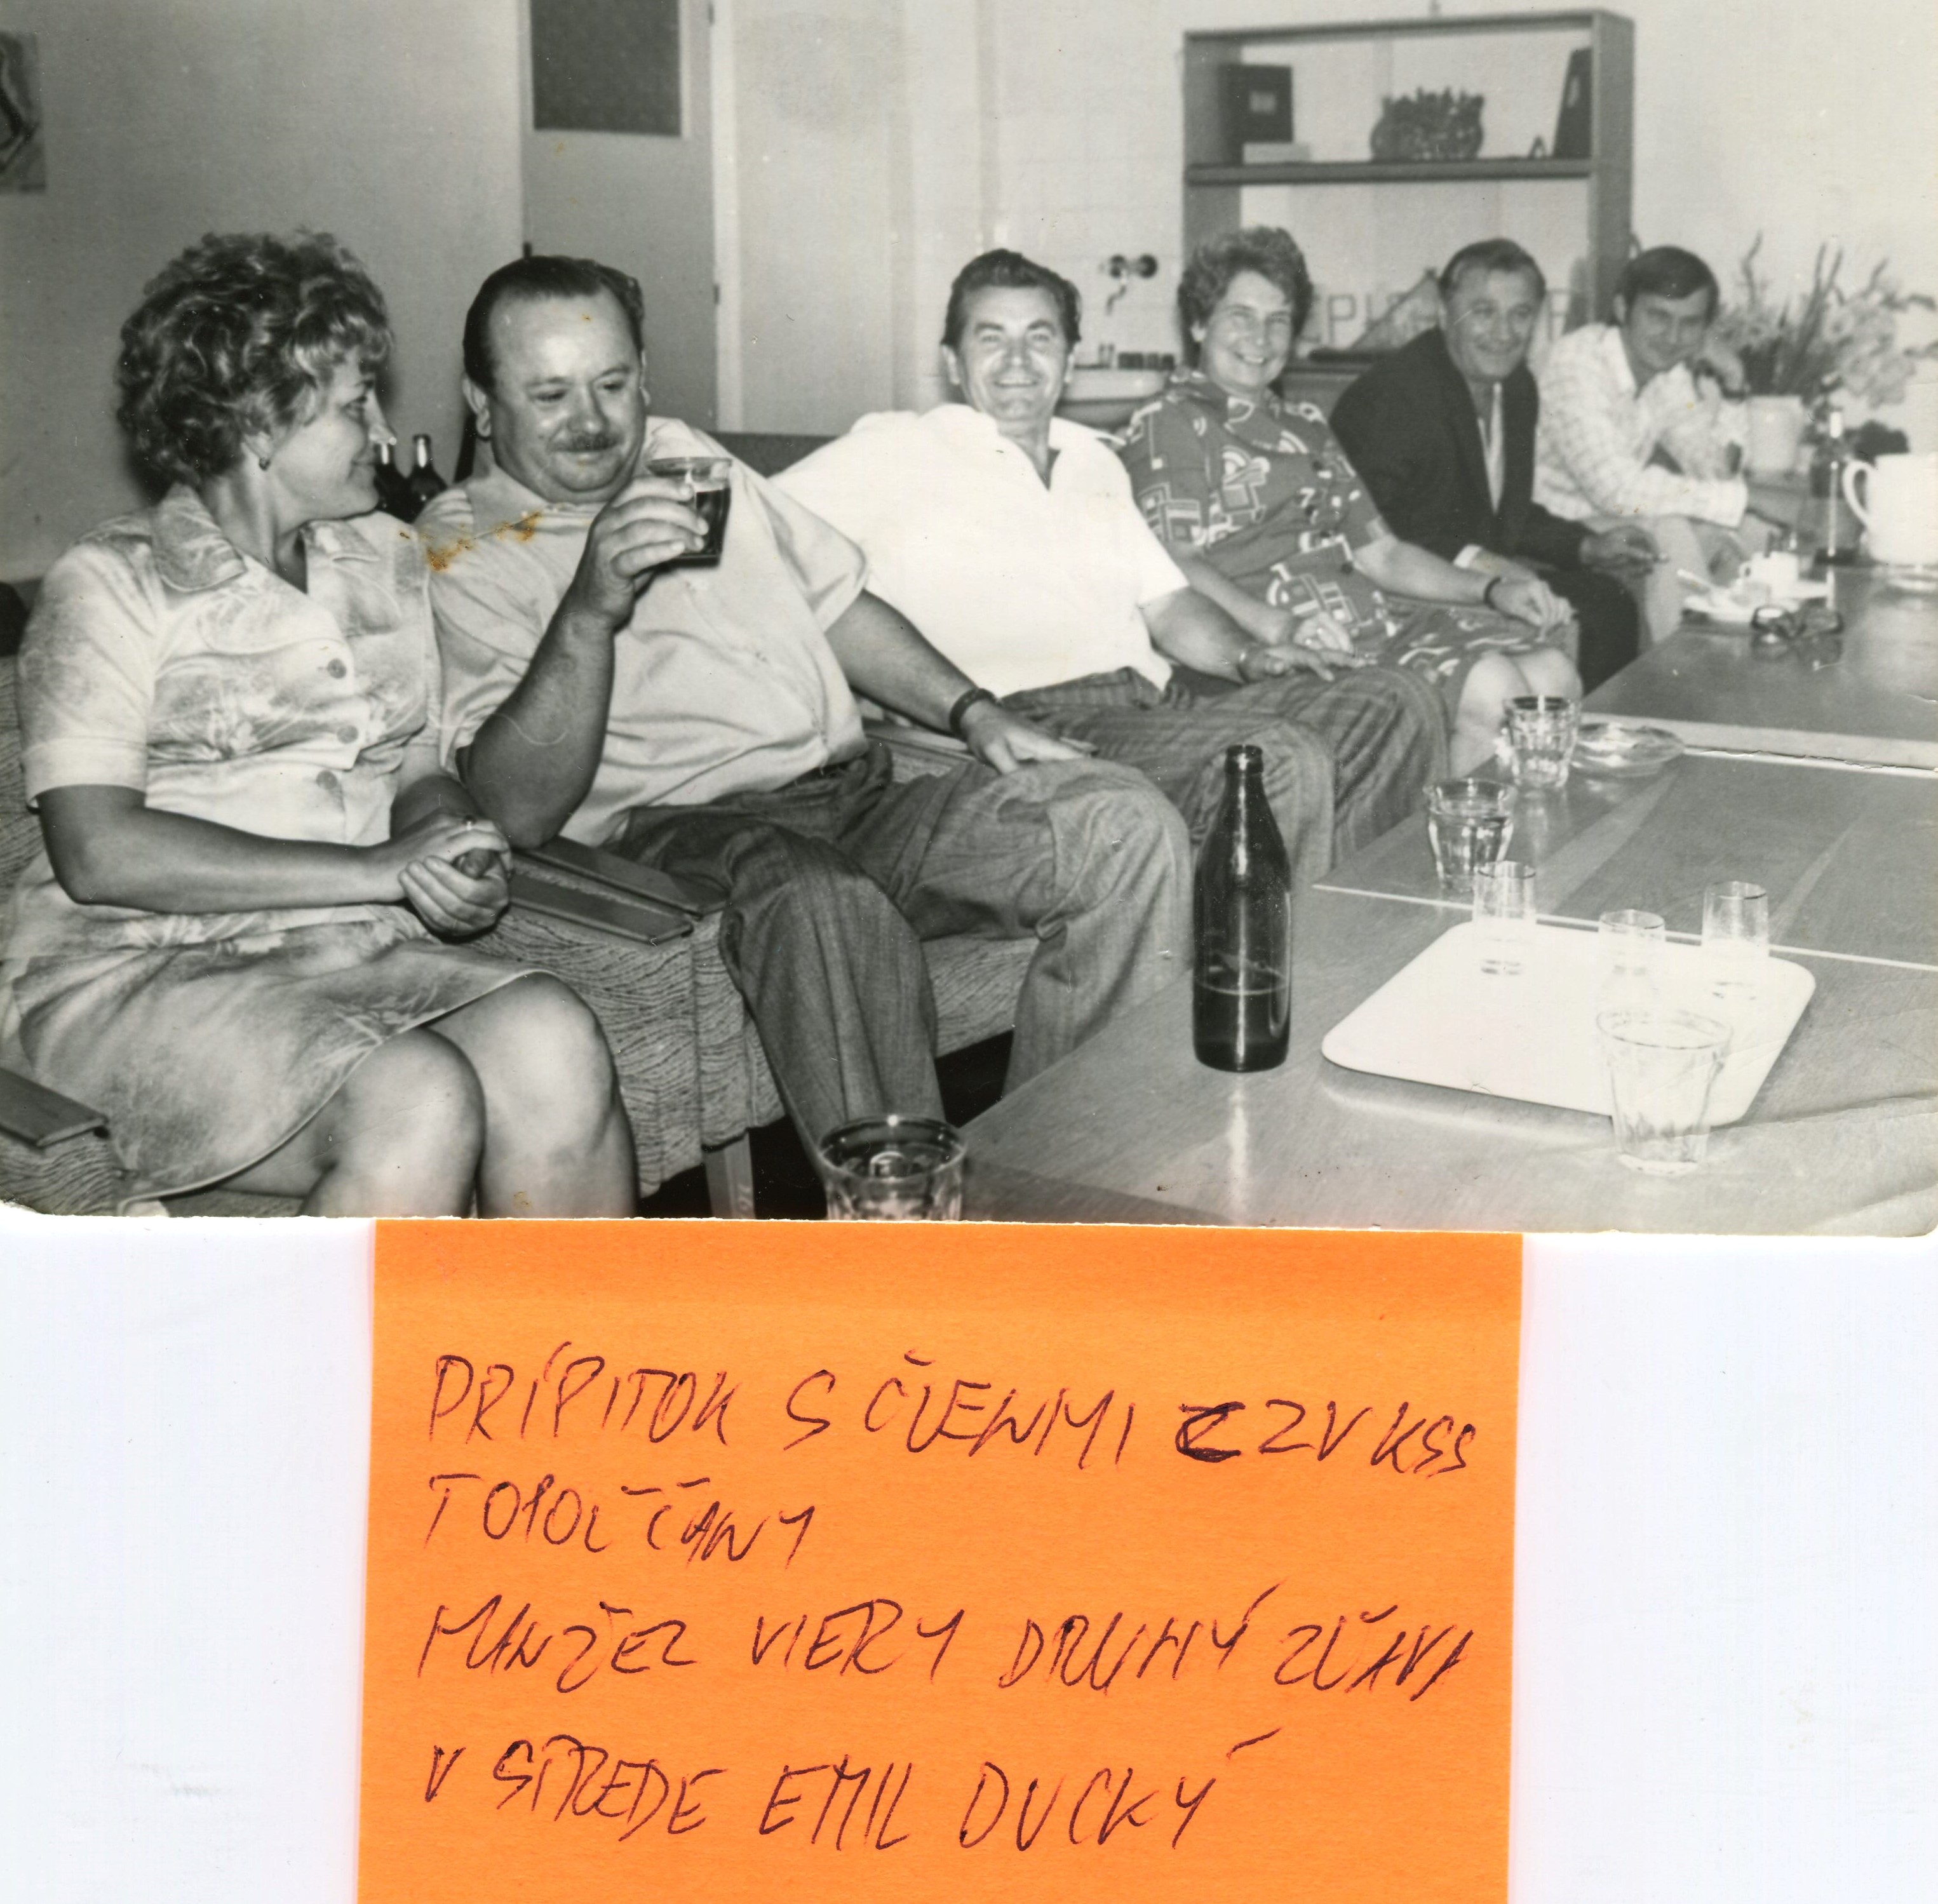 PRÍPITOK S ČLENMI ZV KSS
TOPOĽČANY
MANŽEL VIERY DRUHÝ ZĽAVA
V STREDE EMIL DUCKÝ